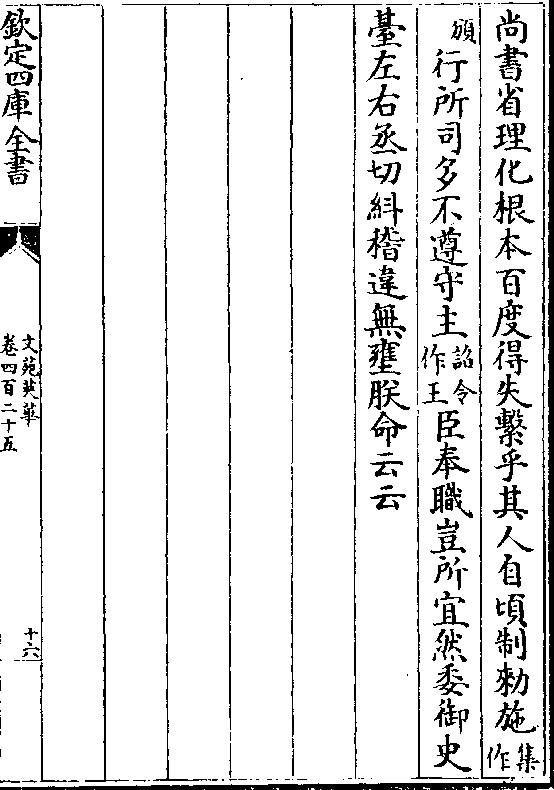 尚書省理化根本百度得失繫乎其人自頃制勑施集作
頒行所司多不遵守主詔令作王臣奉職豈所宜然委御史
臺左右丞切糾稽違無壅朕命云云
欽定四庫全書
文苑英華
卷四百二十五
十六